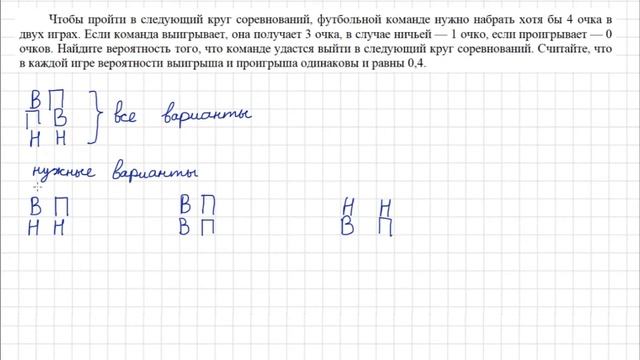 Чтобы пройти в следующий круг соревнований, футбольной команде нужно набрать хотя бы 4 очка в
двух играх. Если команда выигрывает, она получает 3 очка, в случае ничьей — 1 очко, если проигрывает — 0
очков. Найдите вероятность того, что команде удастся выйти в следующий круг соревнований. Считайте, что
в каждой игре вероятности выигрыша и проигрыша одинаковы и равны 0,4.
В П
П В } все варианты
Н Н
нужные варианты
В П В П Н Н
Н Н В П В П